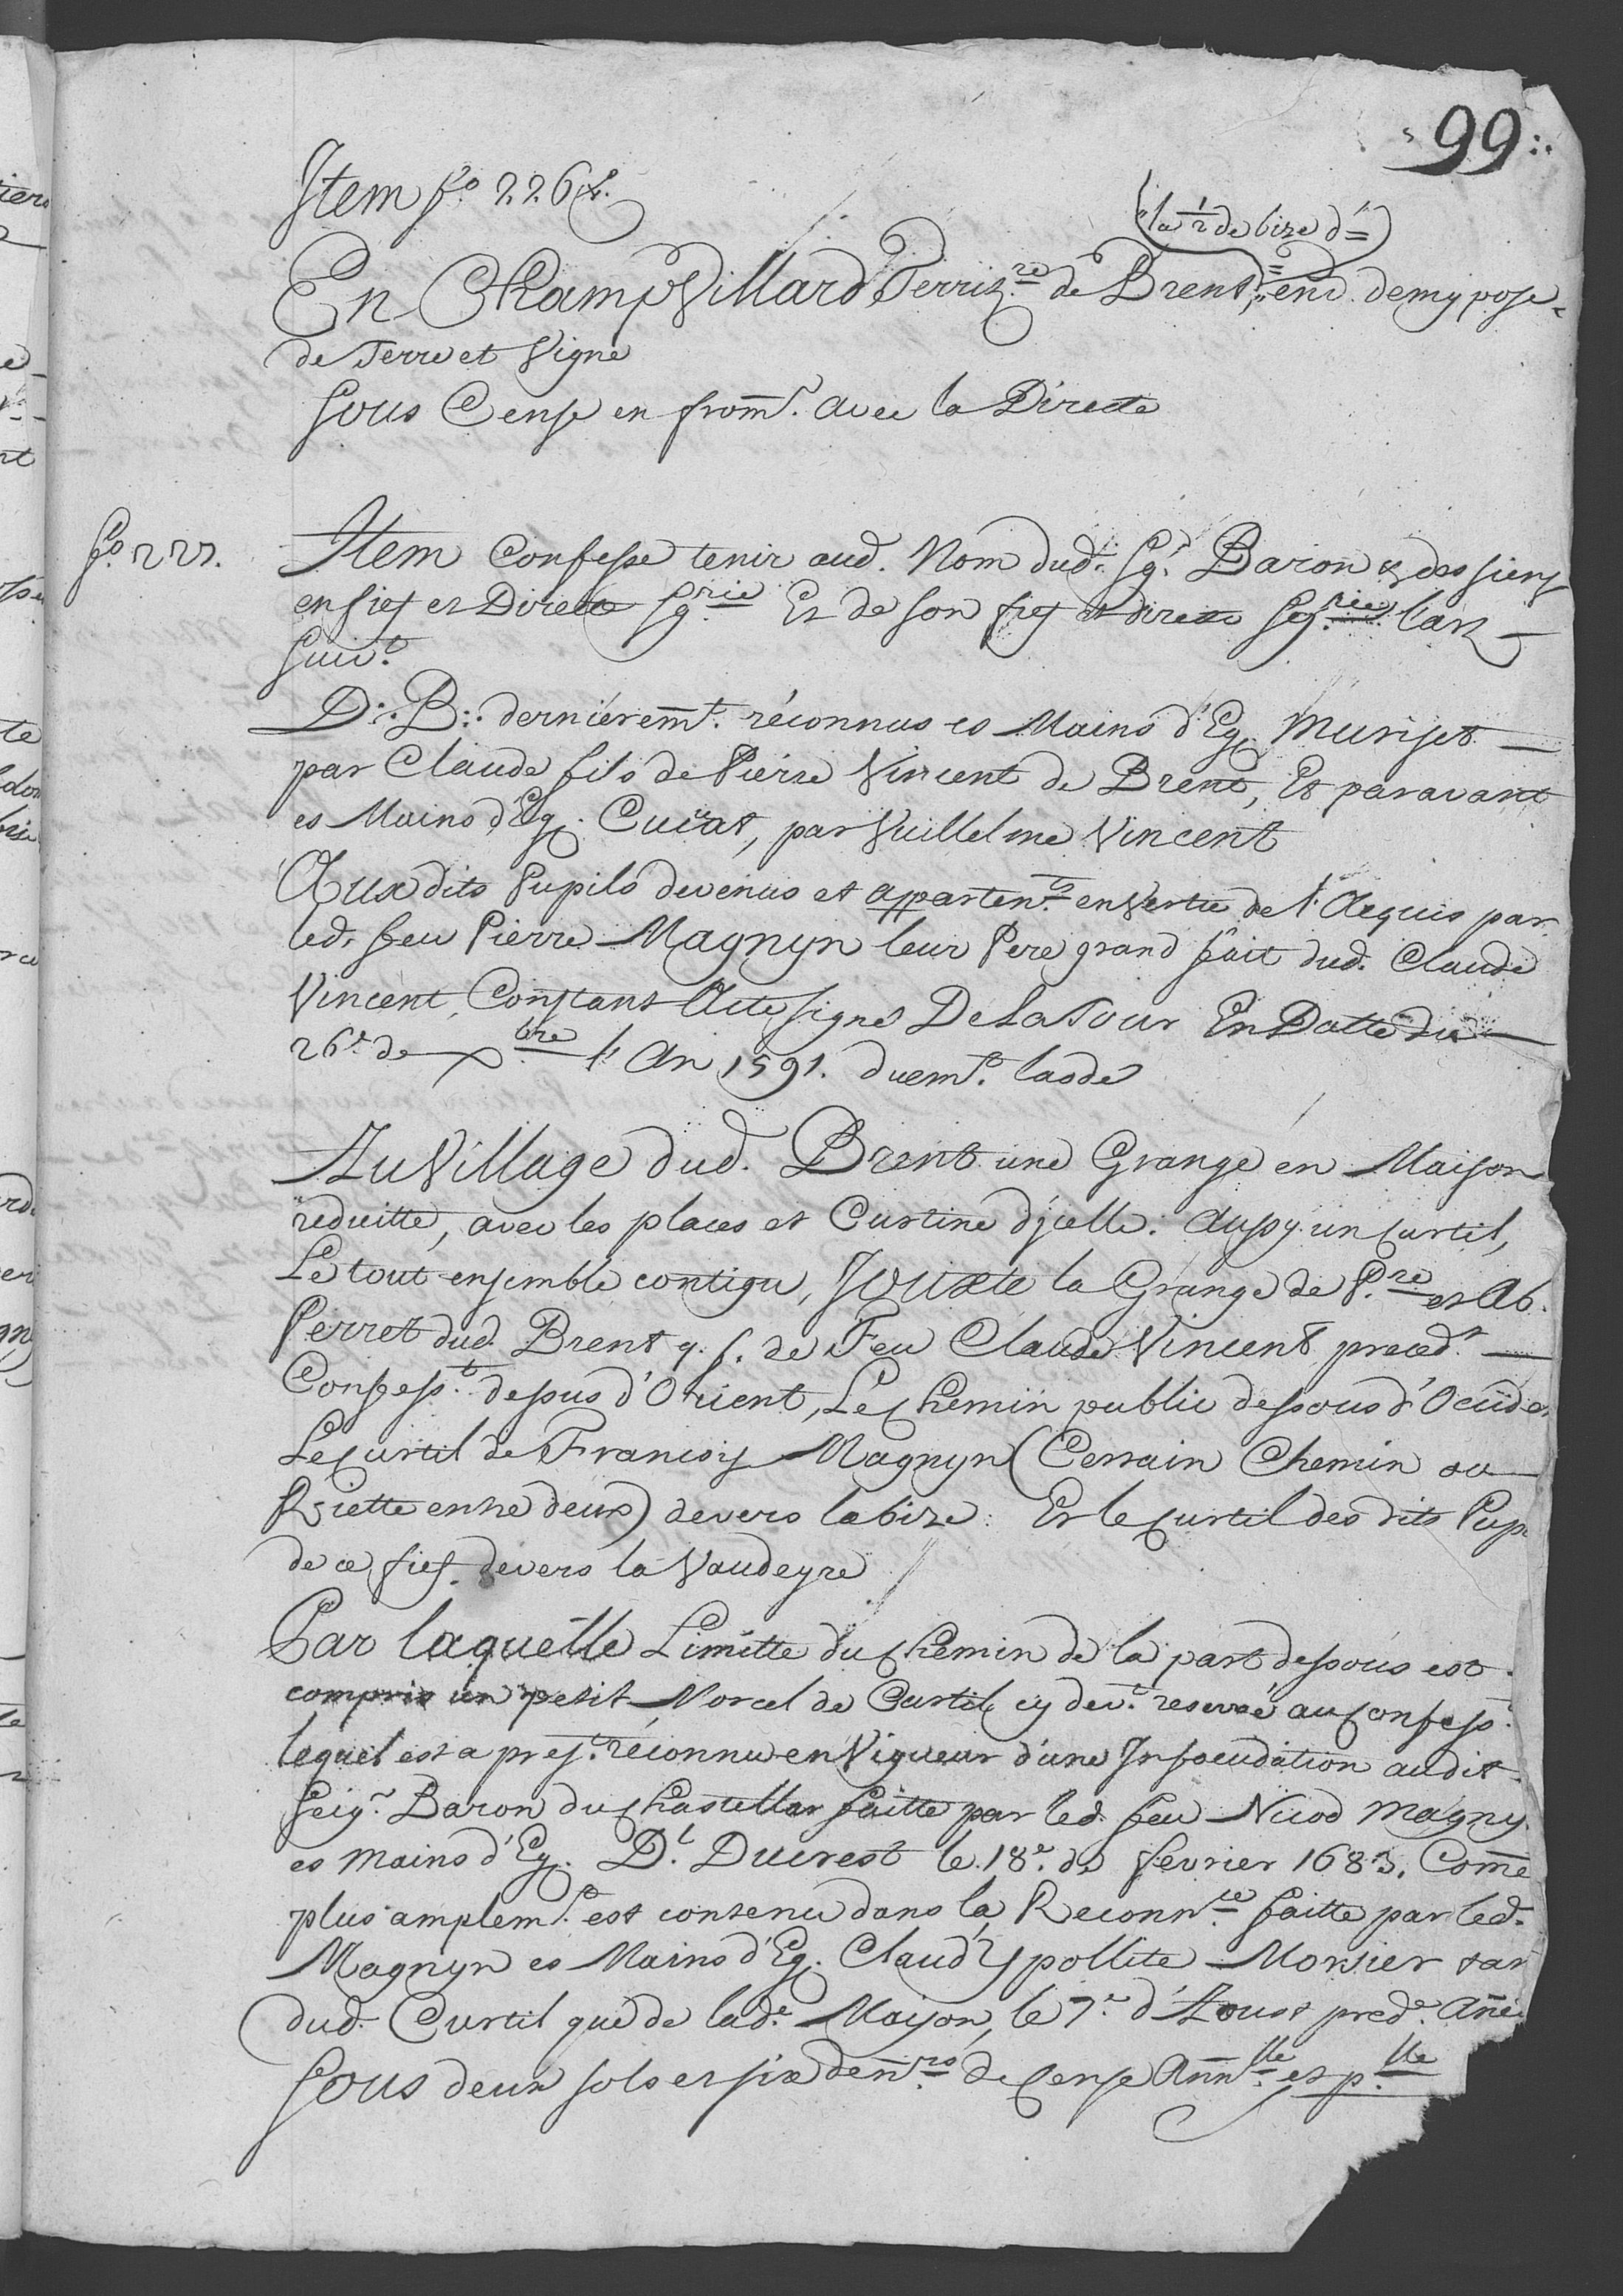 99
Item f.º 226 v.º
(la ½ de bize d'=)
En Champ Villard Territ.re de Brent, env. demy pose
de Terre et Vigne
Sous Cense en from.t avec la Directe
f.º 227.
Item Confesse tenir aud. Nom dud. Sg.r Baron & des siens
en fief et Directe Sg.rie Et de son fief et directe Seg.rie l'art
suiv.t
D:. B:. derniérem.t réconnus es Mains d'Eg. Muriset
par Claude fils de Pierre Vincent de Brent, Et paravant
es Mains d'Eg. Curat, par Vuillelme Vincent
Aux dits Pupils devenus et apparten.ts en Vertu de l'Acquis par
led. feu Pierre Magnyn leur Pere grand fait dud. Claude
Vincent, Constant Acte signé DeLaTour En Datte du
26.e de Xbre l'An 1591. duem.t laodé
Au Village dud. Brent une Grange en Maison
réduitte, avec les places et Curtine d'jcelle. Aussy un Curtil,
Le tout ensemble contigu, Jouxte la Grange de P.re et Ab.
Perret dud. Brent q. f. de Feu Claude Vincent preced.t
Confess.t dessus d'Orient, Le Chemin public dessous d'Occide
Le Curtil de Francois Magnyn (Certain Chemin ou
Riette entre deux) devers la bize: Et le Curtil des dits Pup
de ce fief devers la Vaudeyre
Par laquelle Limitte du Chemin de la part dessous est
compris un petit Morcel de Curtil cy dev.t reservé au Confess.t
lequel est a pres.t réconnu en Vigueur d'une Infoeudation audit
Seig.r Baron du Chastellar faitte par led. feu Nicod Magny
es mains d'Eg. D.l Ducrest le 18.e de fevrier 1683. Come
plus amplem.t est contenu dans la Reconn.ce faitte par led.
Magnyn es Mains d'Eg. Claud'Ypollite Monier tan
dud. Curtil que de lad.e Maison, le 7.e d'Aoust pred.e Anné
Sous deux sols et six den.rs de Cense Ann.lle et p.lle